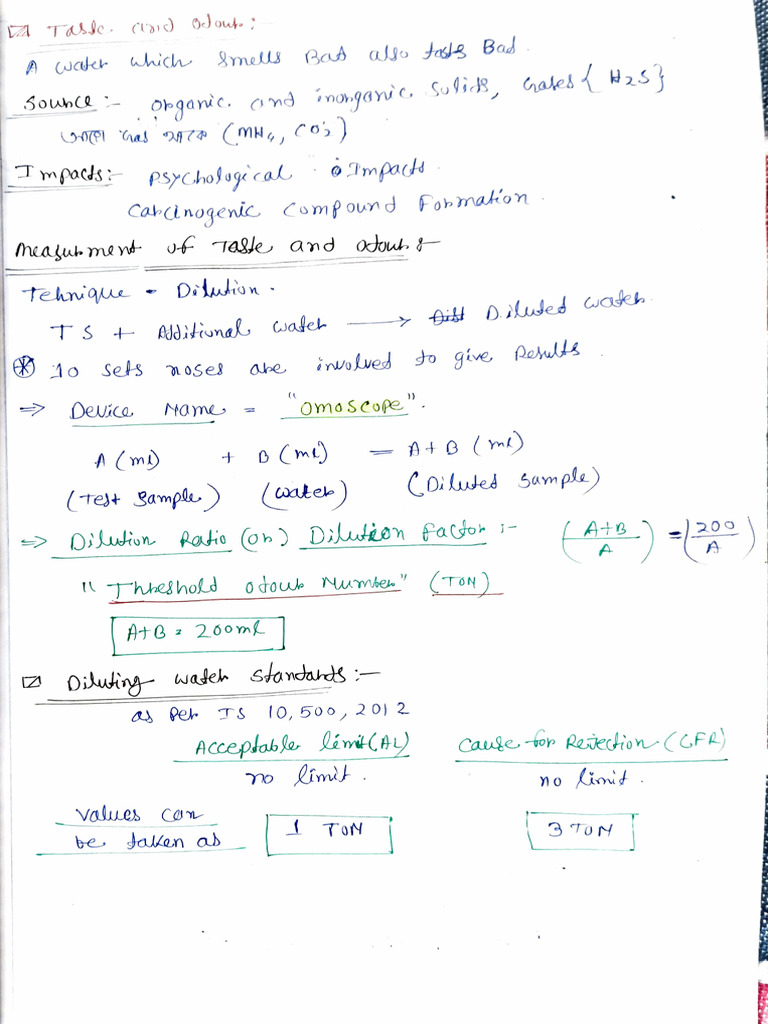 Taste and Odour:
A water which smells Bad also tasts Bad.
Source:- Organic and inorganic solids, Gases { H2S }
আরো Gas আছে (MH4, CO2)
Impacts:- Psychological Impacts.
Carcinogenic Compound Formation.
Measurment of Taste and Odour:-
Tehnique - Dilution.
TS + Additional water → Diluted water.
* 10 sets noses are involved to give Results.
⇒ Device Name = "Omoscope".
A (ml) + B (ml) = A+B (ml)
(Test Sample) (Water) (Diluted Sample)
⇒ Dilution Ratio (or) Dilution factor:- (A+B/A) = (200/A)
"Threshold Odour Number" (TON)
A+B = 200ml
Diluting water Standards:-
as Per IS 10,500, 2012
Acceptable limit (AL) Cause for Rejection (CFR)
no limit. no limit.
Values can 1 TON 3 TON
be taken as